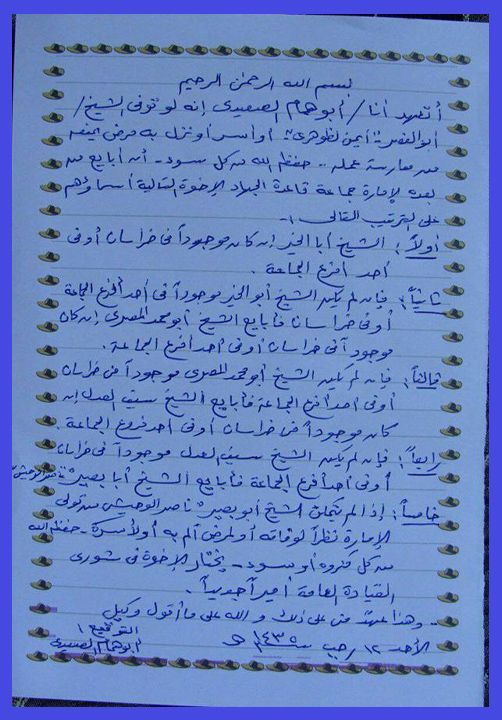 بسم الله الرحمن الرحيم
أتعهد أنا / أبو همام الصعيدي إنه لو توفى الشيخ /
أبو الفتوح "أيمن الظواهري" أو أسر أو نزل به مرض يمنعه
من ممارسة عمله .. حفظه الله من كل سوء - أن أبايع من
بعده لإمارة جماعة قاعدة الجهاد الإخوة التالية أسماؤهم
على الترتيب التالى :-
أولاً : الشيخ أبا الخير إن كان موجوداً فى خراسان أو فى
أحد أفرع الجماعة .
ثانياً : فإن لم يكن الشيخ أبو الخير موجوداً فى أحد أفرع الجماعة
أو فى خراسان فأبايع الشيخ أبو محمد المصرى إن كان
موجوداً فى خراسان أو فى أحد أفرع الجماعة .
ثالثاً : فإن لم يكن الشيخ أبو محمد المصرى موجوداً فى خراسان
أو فى أحد أفرع الجماعة فأبايع الشيخ سيف العدل إن
كان موجوداً فى خراسان أو فى أحد فروع الجماعة
رابعاً : فإن لم يكن الشيخ سيف العدل موجوداً فى خراسان
أو فى أحد أفرع الجماعة فأبايع الشيخ أبا بصير "ناصر الوحيشى"
خامساً : إذا لم يتمكن الشيخ أبو بصير "ناصر الوحيشى" من تولى
الإمارة نظراً لوفاته أو لمرض ألم به أو لأسره - حفظه الله
من كل مكروه أو سوء - يختار الإخوة فى شورى
القيادة العامة أميراً جديداً .
.. وهذا عهد منى على ذلك والله على ما أقول وكيل
التوقيع :
الأحد ١٢ / رجب سنة ١٤٣٥ هـ
أبو همام الصعيدى